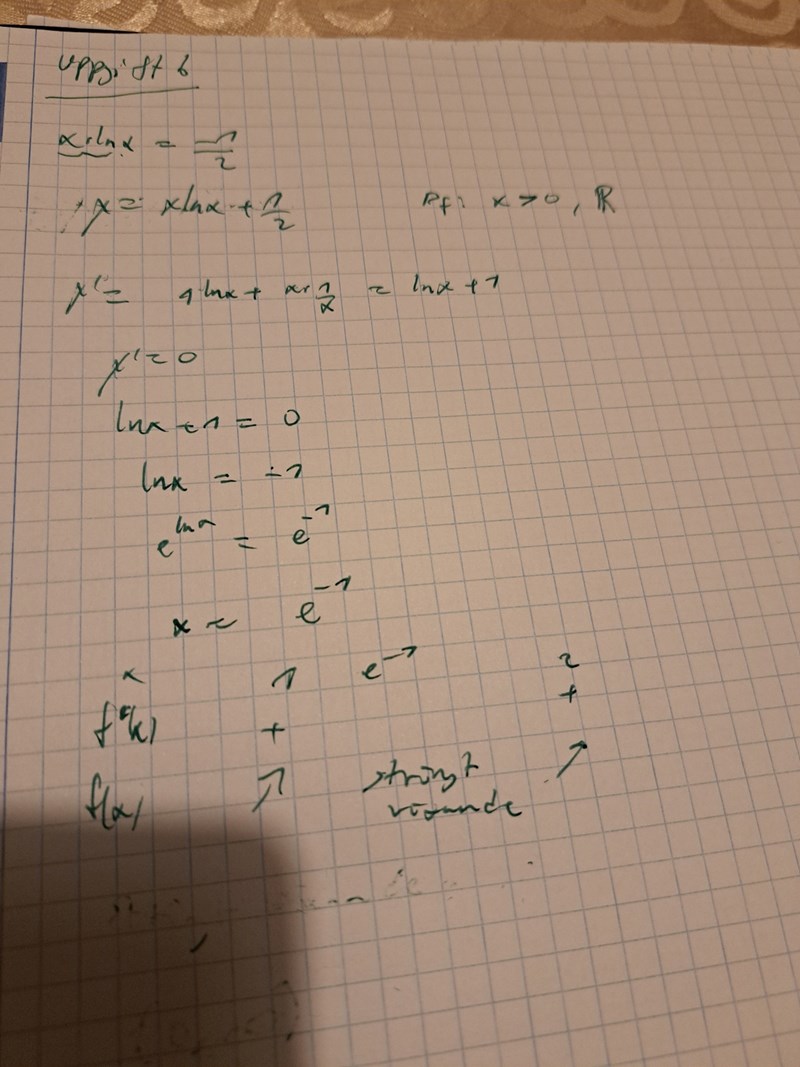 Uppgift 6
x·lnx = -1/2
y = xlnx + 1/2 Df: x > 0, ℝ
y' = 1·lnx + x·1/x = lnx + 1
y' = 0
lnx + 1 = 0
lnx = -1
e^lnx = e^-1
x = e^-1
x 1 e^-1 2
f'(x) + +
f(x) ↗ strängt ↗
växande